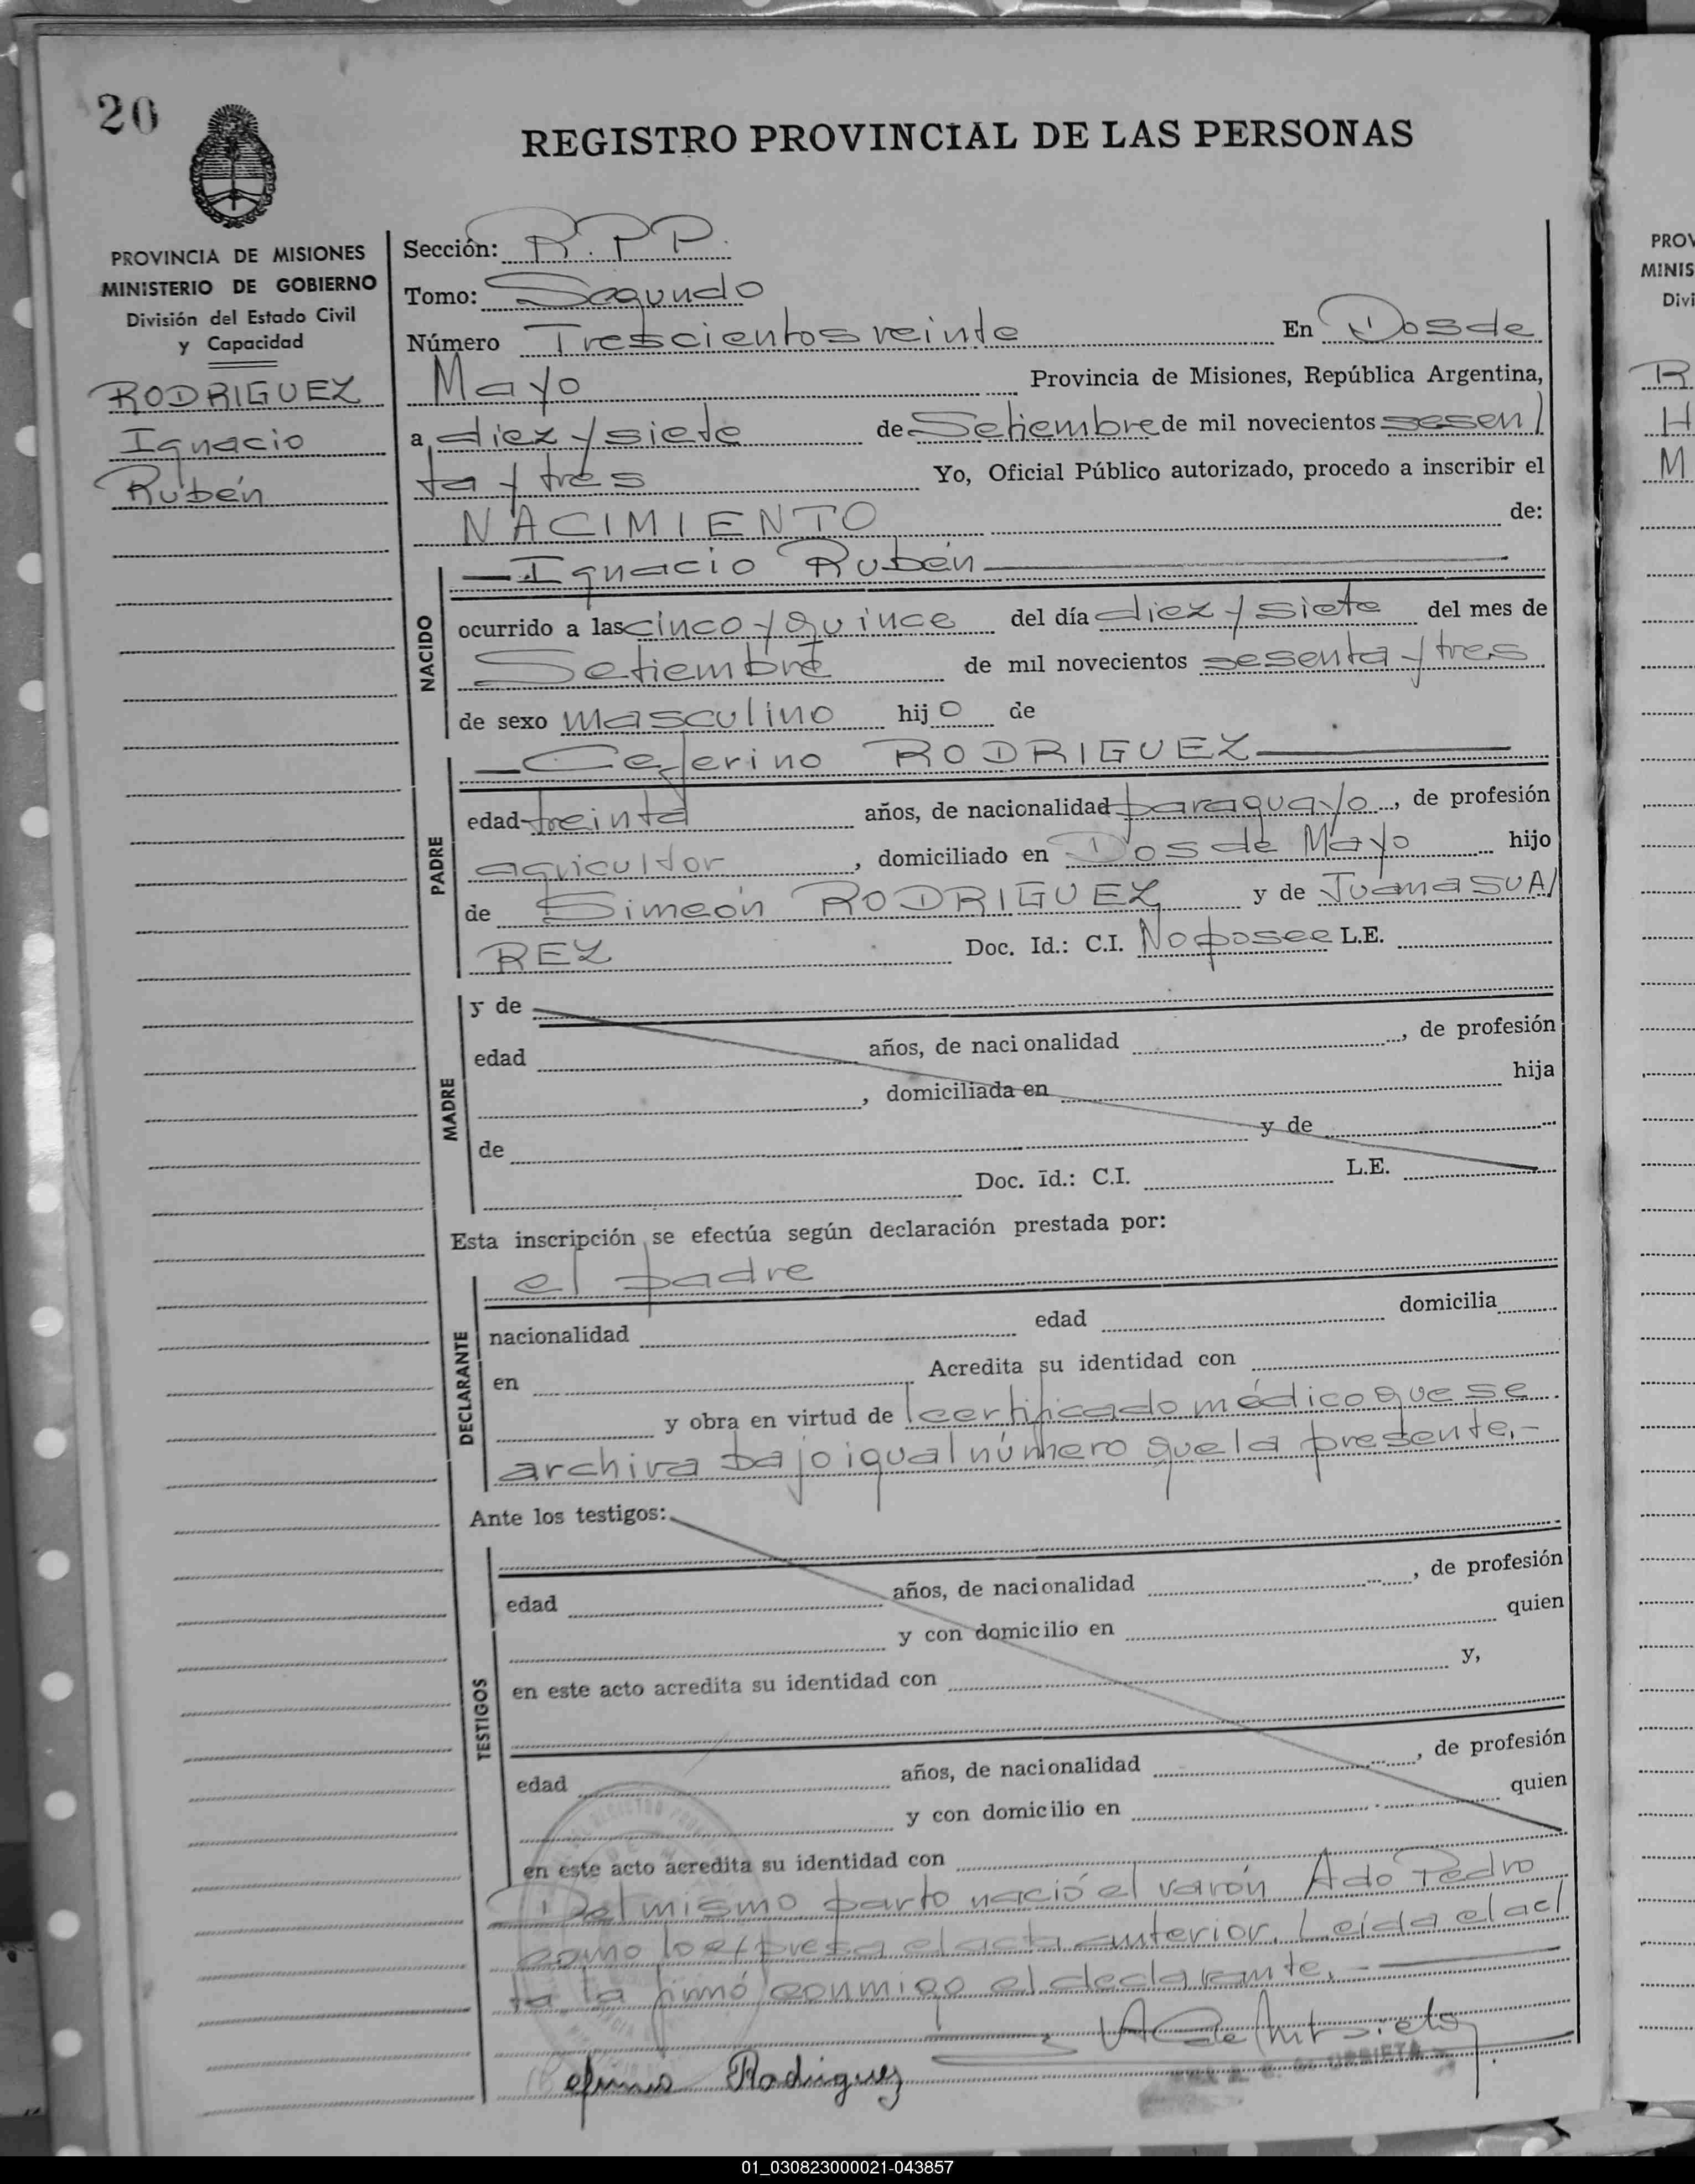 20
REGISTRO PROVINCIAL DE LAS PERSONAS
PROVINCIA DE MISIONES
MINISTERIO DE GOBIERNO
División del Estado Civil
y Capacidad
RODRIGUEZ
Ignacio
Rubén
Sección: R.P.P.
Tomo: Segundo
Número Trescientos veinte En Dos de
Mayo Provincia de Misiones, República Argentina,
a diez y siete de Setiembre de mil novecientos sesen/
ta y tres Yo, Oficial Público autorizado, procedo a inscribir el
NACIMIENTO de:
NACIDO
— Ignacio Rubén —
ocurrido a las cinco y quince del día diez y siete del mes de
Setiembre de mil novecientos sesenta y tres
de sexo masculino hijo de
PADRE
— Ceferino RODRIGUEZ —
edad treinta años, de nacionalidad paraguayo, de profesión
agricultor, domiciliado en Dos de Mayo hijo
de Simeón RODRIGUEZ y de Juana SUA/
REZ Doc. Id.: C.I. No posee L.E.
MADRE
y de
edad años, de nacionalidad , de profesión
, domiciliada en hija
de y de
Doc. Id.: C.I. L.E.
Esta inscripción se efectúa según declaración prestada por:
DECLARANTE
el padre
nacionalidad edad domicilia
en Acredita su identidad con
y obra en virtud de certificado médico que se
archiva bajo igual número que la presente.-
Ante los testigos:
TESTIGOS
edad años, de nacionalidad , de profesión
y con domicilio en quien
en este acto acredita su identidad con y,
edad años, de nacionalidad , de profesión
y con domicilio en quien
en este acto acredita su identidad con
Del mismo parto nació el varón Ado Pedro
como lo expresa el acta anterior. Leída el ac/
ta, la firmó conmigo el declarante.-
Rodriguez
URRIETA
PROV
MINIS
Divi
R
H
M
01_030823000021-043857